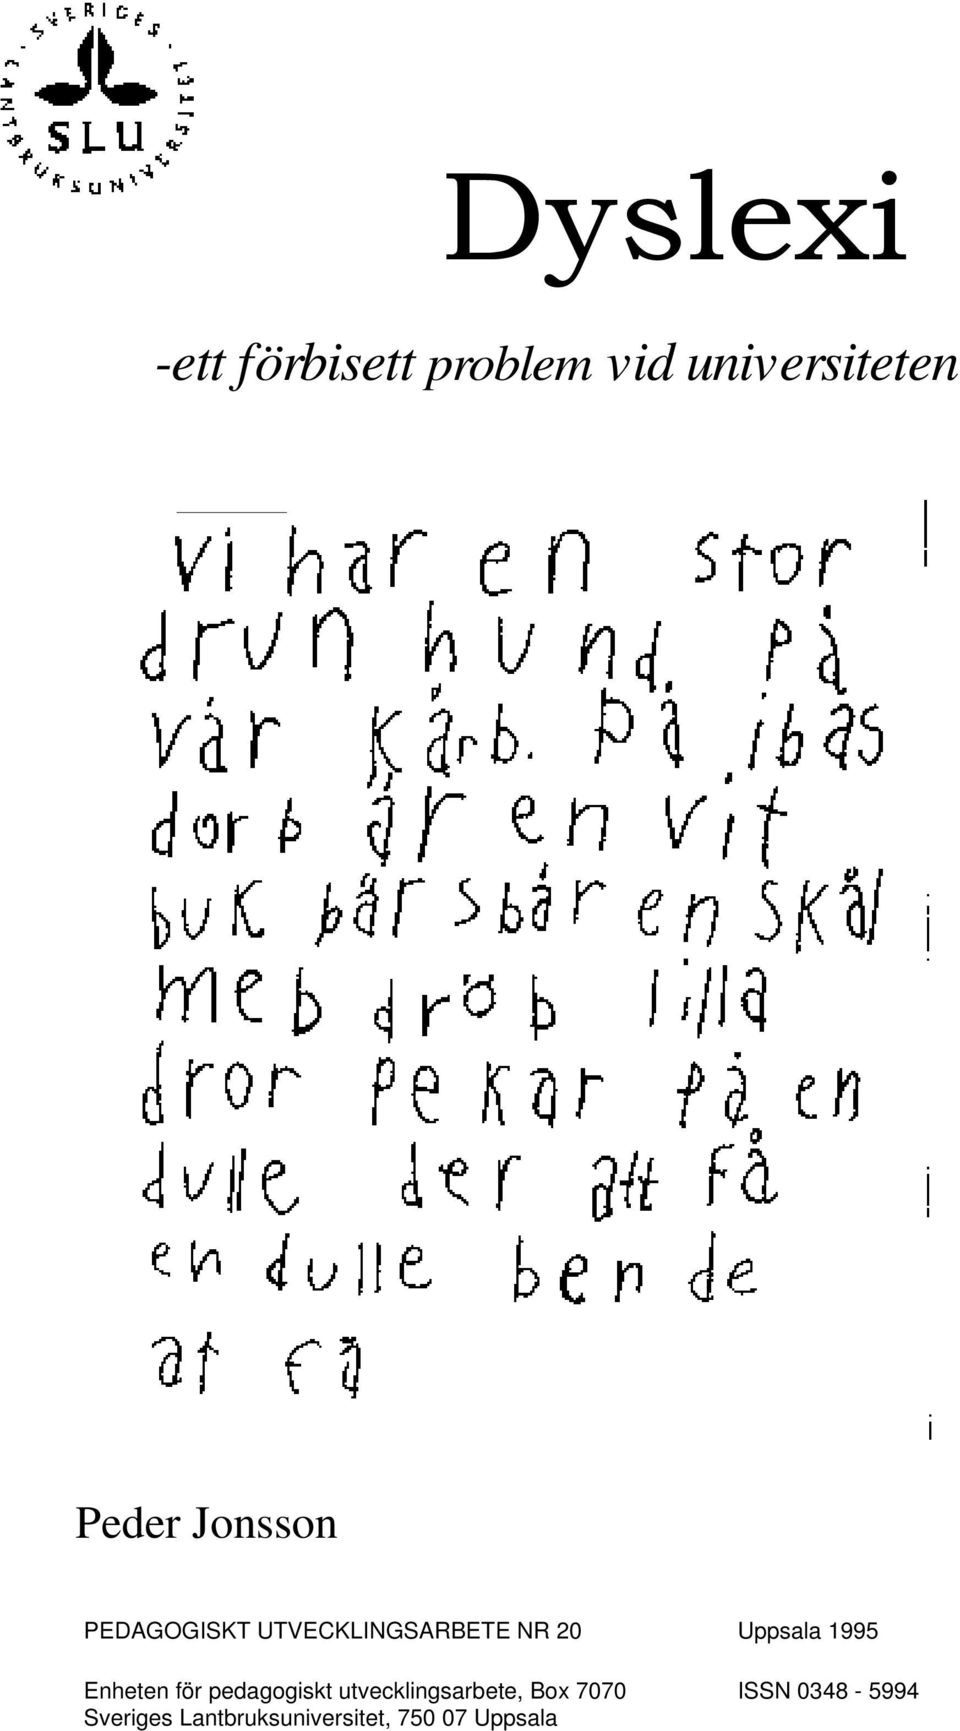 SVERIGES LANTBRUKSUNIVERSITET
SLU
Dyslexi
-ett förbisett problem vid universiteten
vi har en stor
drun hund. på
vår kårb. På ibås
dorb är en vit
buk bär sbår en skål
meb dröb lilla
dror pekar på en
dulle der att få
en dulle ben de
at få
Peder Jonsson
PEDAGOGISKT UTVECKLINGSARBETE NR 20 Uppsala 1995
Enheten för pedagogiskt utvecklingsarbete, Box 7070 ISSN 0348 - 5994
Sveriges Lantbruksuniversitet, 750 07 Uppsala